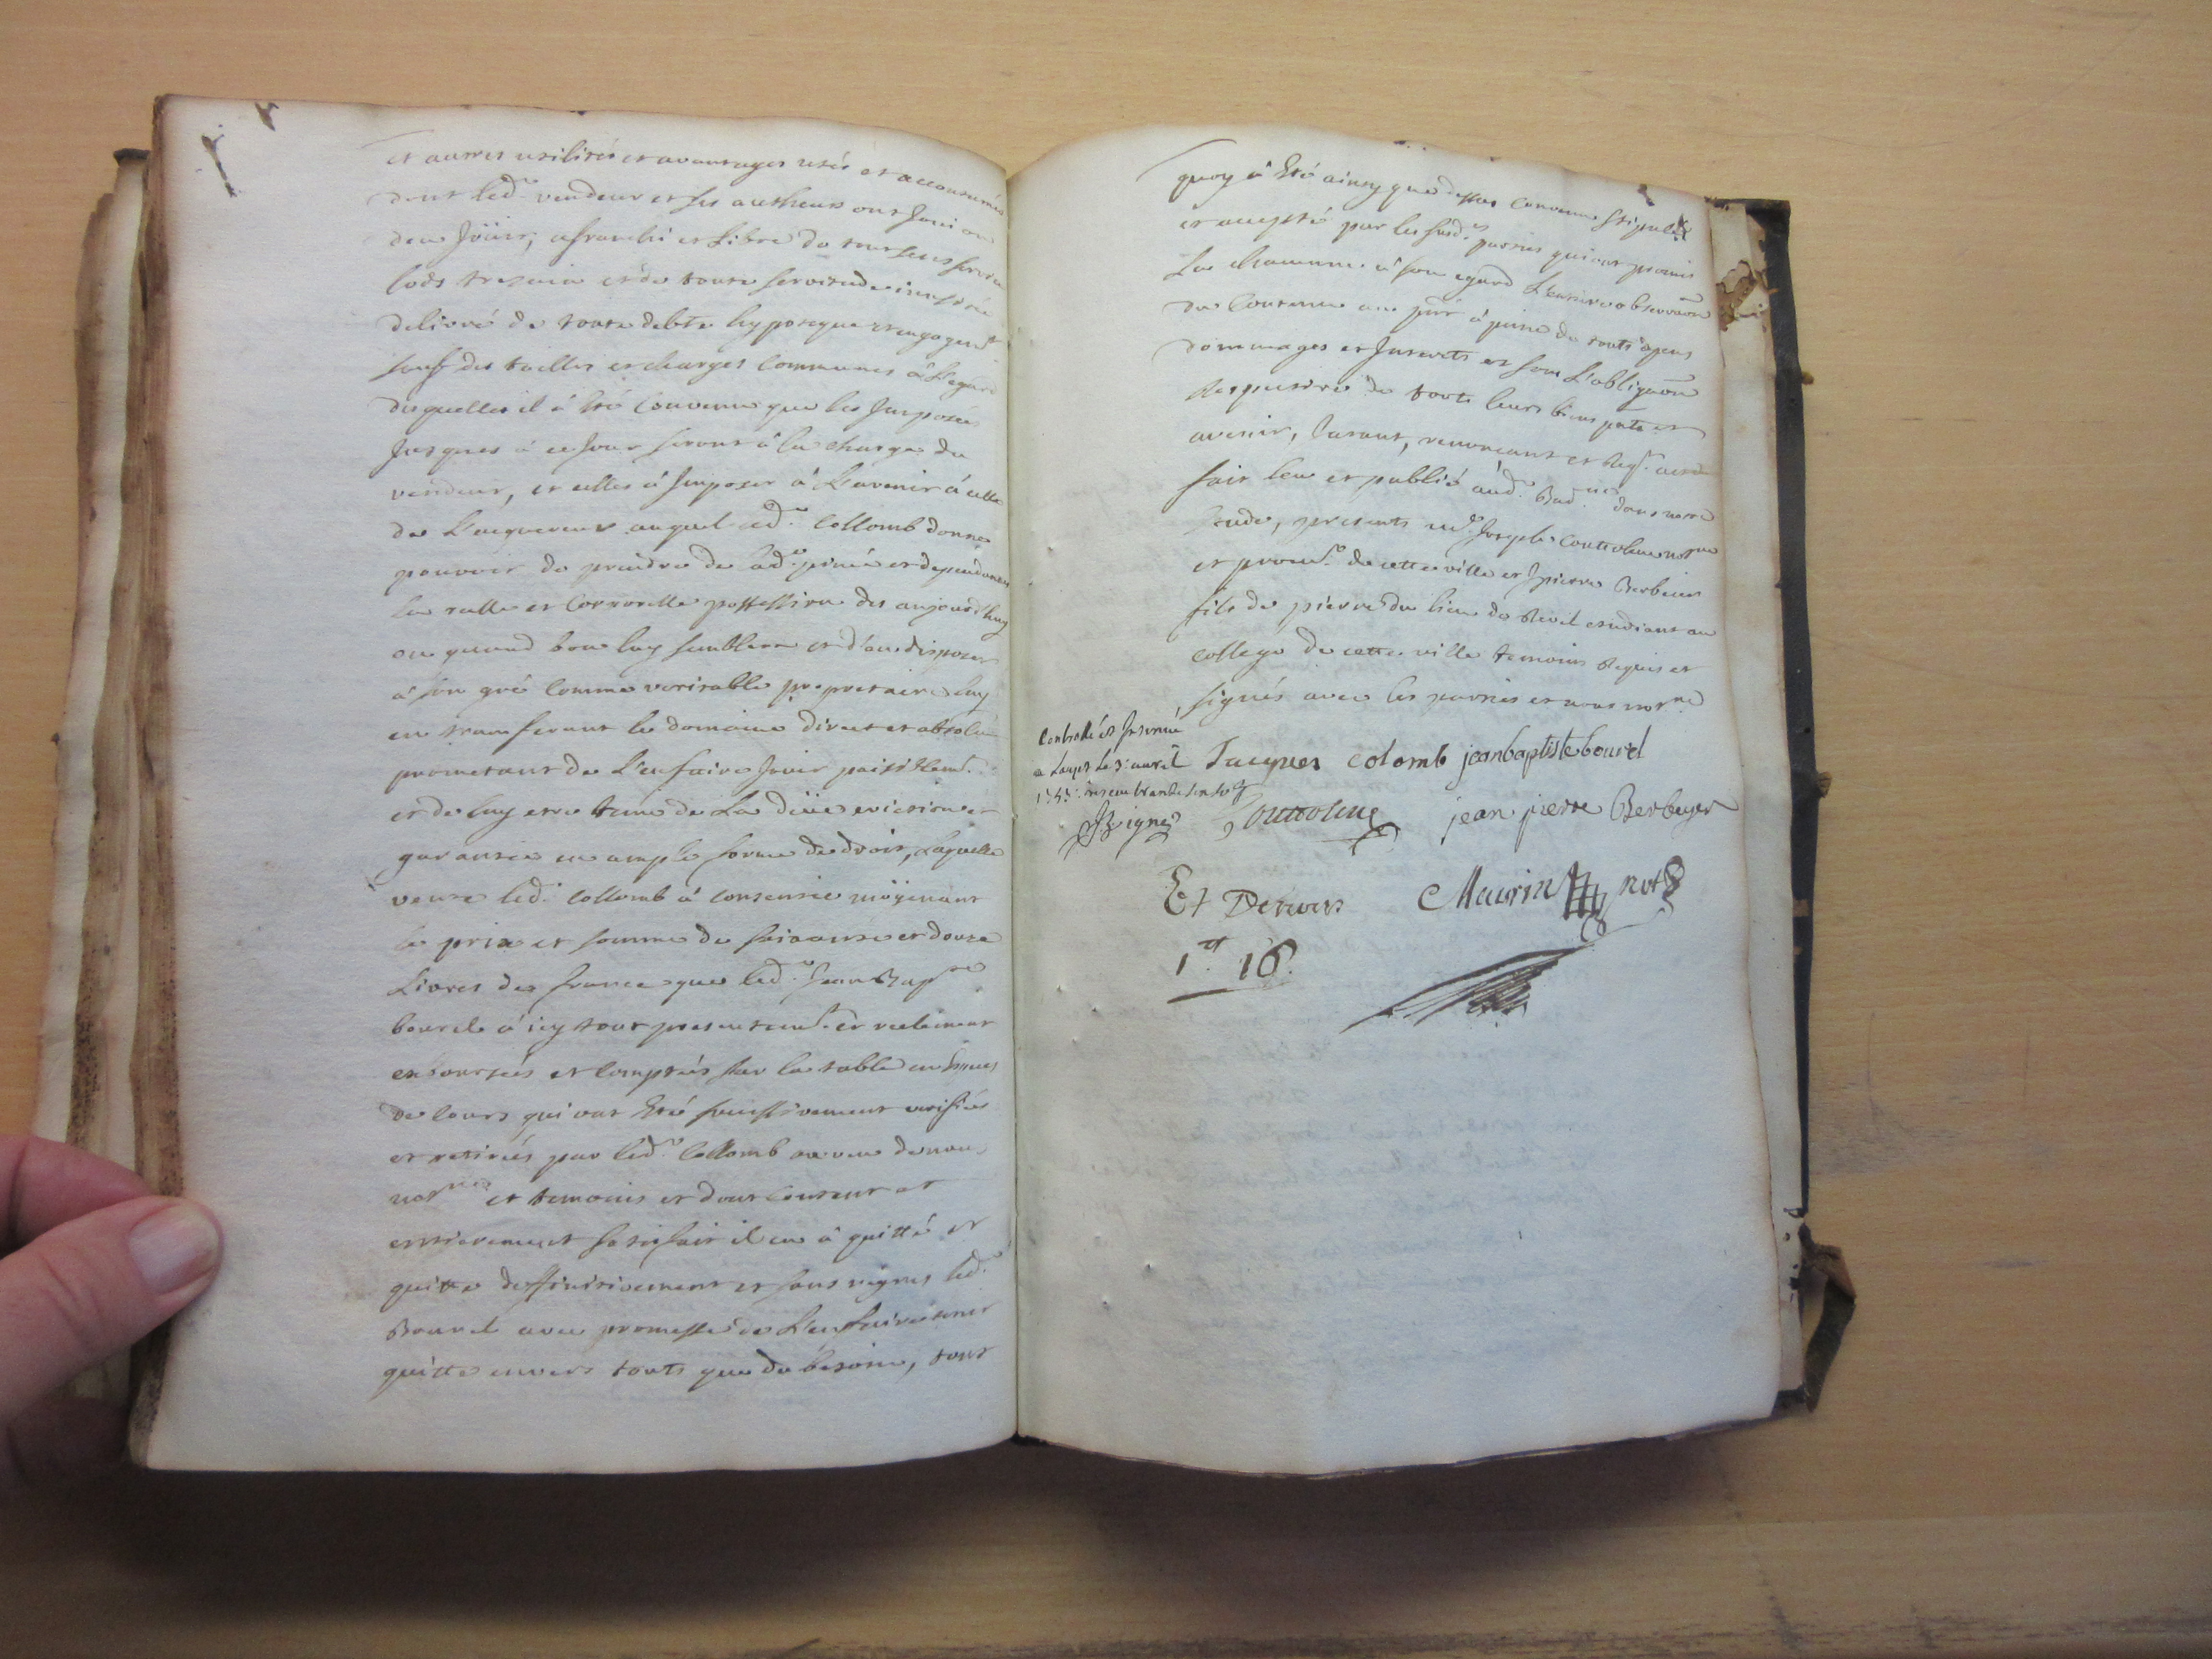 et autres utilités et avantages usés et accoutumés
dont led.t vendeur et ses autheurs ont Joui ou
deu Joüir, afranchi et Libre de tout sens servis
lods tresain et de toute servitude
delivré de toute debte hypoteque et engagem.t
sauf des tailles et charges Communes à L'egard
desquelles il à Eté Convenu que les Imposées
Jusques à ce Jour seront à la charge du
vendeur, et celles à Imposer à L'avenir à celle
de L'acquereur auquel led.t Collomb donne
pouvoir de prendre de lad.e piece et dependances
la reelle et Corporelle possession des aujourdhuy
ou quand bon luy semblera et d'en disposer
à son gré Comme veritable propretaire luy
en transferant le domaine direct et absolu
prometant de L'en faire Jouir paisiblem.t
et de luy etre tenu de La düe eviction et
garantie en ample forme de droit, Laquelle
vente led.t Collomb à consentie moÿenant
le prix et somme de soixante et douze
Livres de france que led.t Jean Bap.te
bourel à icy tout presentem.t et reelement
exboursés et Comptés sur la table en
de cours qui ont Eté successivement verifiés
et retirés par led.t Collomb au veu de nous
not.re et temoins et dont Content et
entierement satisfait il en à quitté et
quitte deffinitivement et sans regres led.t
Bourel avec promesse de L'en faire tenir
quitte envers touts que de besoin, tout
quoy à Eté ainsy que dessus Convenu Stipulé
et accepté par les susd.es parties qui ont promis
La chacunne à son egard L'entiere observaõn
du Contenu au pñt à peine de touts depens
dommages et Interets et sous L'obligaõn
Respective de touts leurs biens pñts et
avenir, Jurant, renonceant et Req.t acte
fait leu et publié aud.t dans notre
Etude, presents m.e Joseph Couttolenc not.re
et procu.r de cette ville et Jpierre Berbeier
fils de pierre du lieu de Revel etudiant au
college de cette ville temoins Requis et
signés avec les parties et nous not.re
Controllé et Insinué
a Lauzet le 3.e avril
Jacques colomb jeanbaptiste bourel
Couttolenc jean pierre Berbeyer
Et De nous Maurin not.re
1.tt 16.